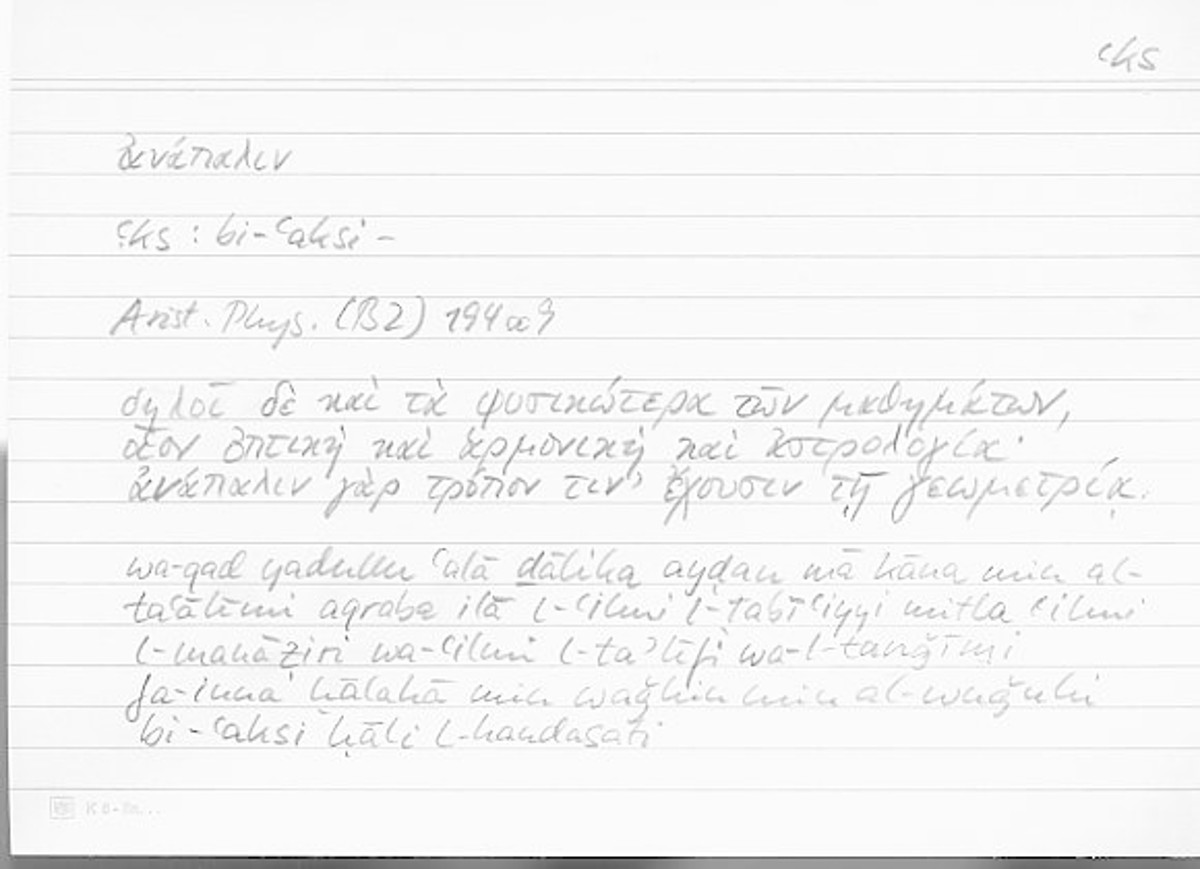 ʿks
ἀνάπαλιν
ʿks : bi-ʿaksi –
Arist. Phys. (B2) 194a9
δηλοῖ δὲ καὶ τὰ φυσικώτερα τῶν μαθημάτων,
οἷον ὀπτικὴ καὶ ἁρμονικὴ καὶ ἀστρολογία·
ἀνάπαλιν γὰρ τρόπον τιν’ ἔχουσιν τῇ γεωμετρίᾳ.
wa-qad yadullu ʿalā ḏālika ayḍan mā kāna min al-
taʿālīmi aqraba ilā l-ʿilmi l-ṭabīʿiyyi miṯla ʿilmi
l-manāẓiri wa-ʿilmi l-taʾlīfi wa-l-tanǧīmi
fa-inna ḥālahā min waǧhin min al-wuǧūhi
bi-ʿaksi ḥāli l-handasati